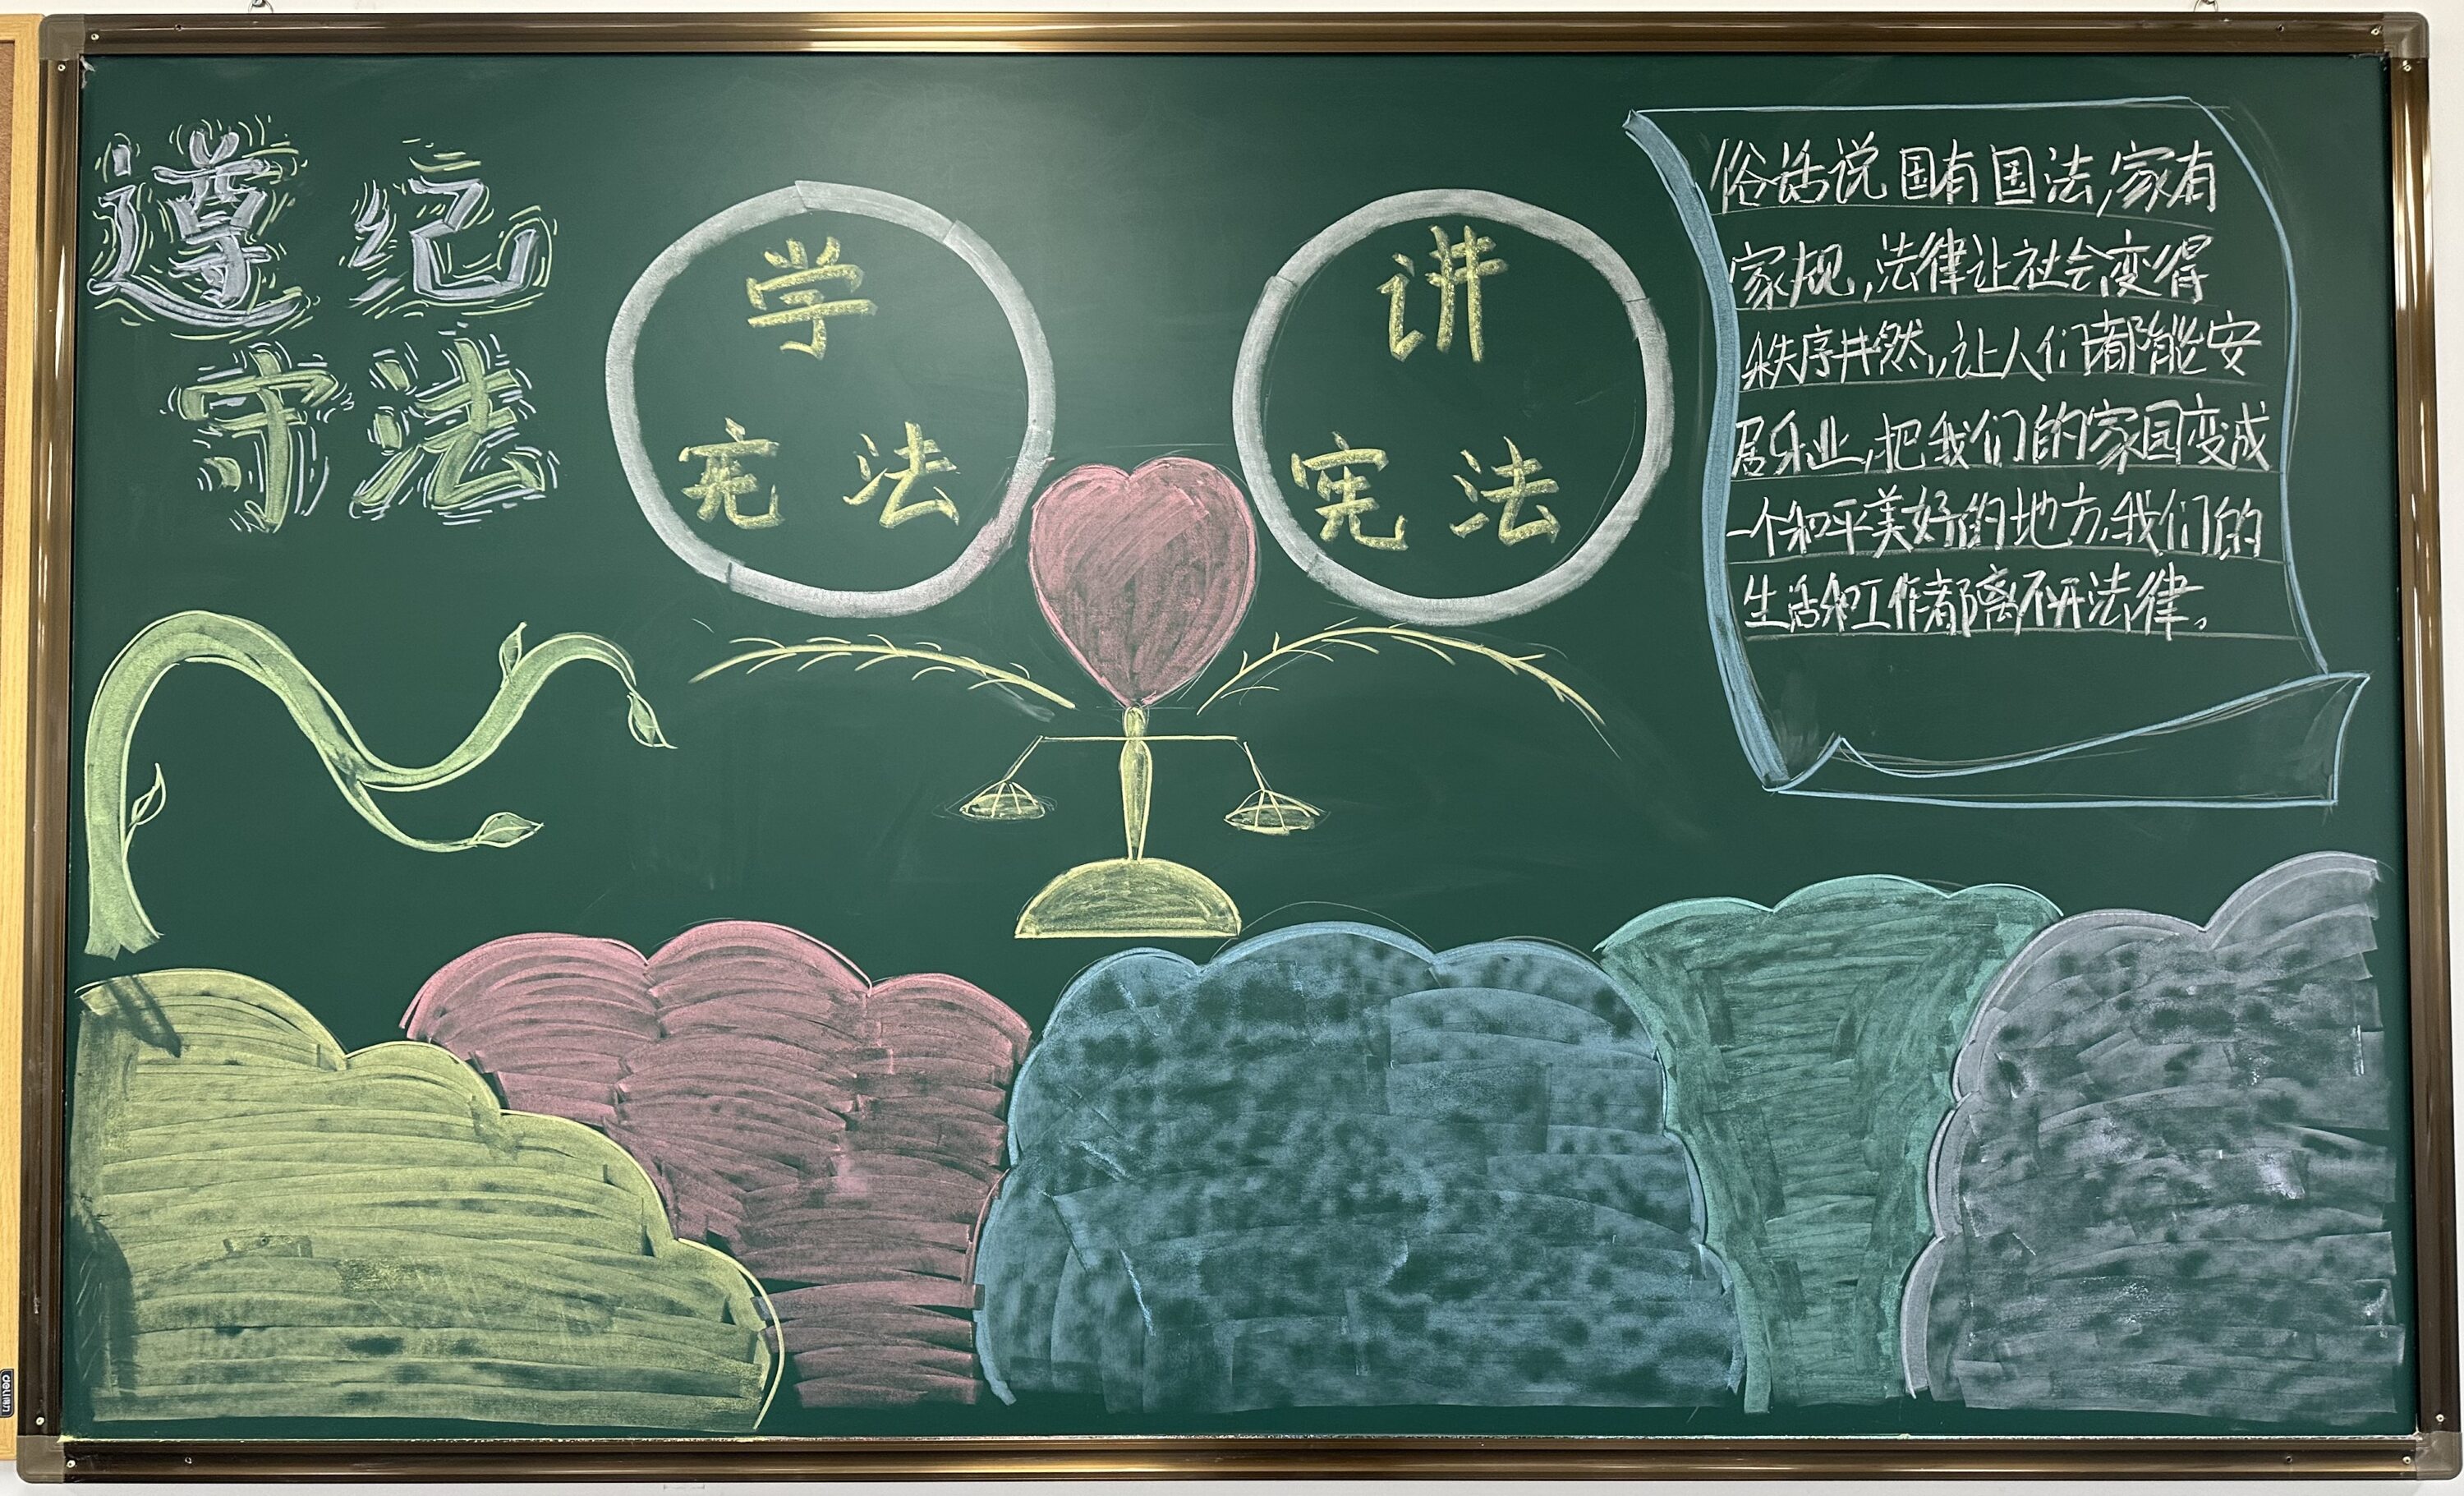 遵纪
守法
学
宪法
讲
宪法
俗话说国有国法,家有
家规,法律让社会变得
秩序井然,让人们都能安
居乐业,把我们的家园变成
一个和平美好的地方,我们的
生活和工作都离不开法律。
deli